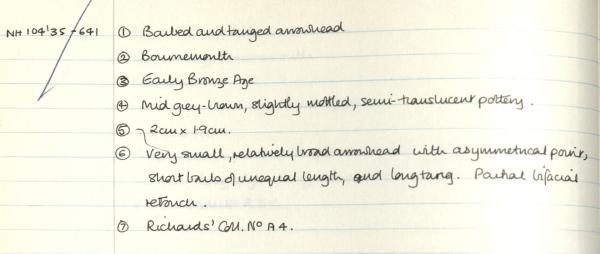 NH 104'35-641 ① Barbed and tanged arrowhead
② Bournemouth
③ Early Bronze Age
④ Mid grey-brown, slightly mottled, semi-translucent pottery.
⑤ 2cm x 1.9cm.
⑥ Very small, relatively broad arrowhead with asymmetrical point,
short barbs of unequal length, and long tang. Partial bifacial
retouch.
⑦ Richards' Coll. No A4.